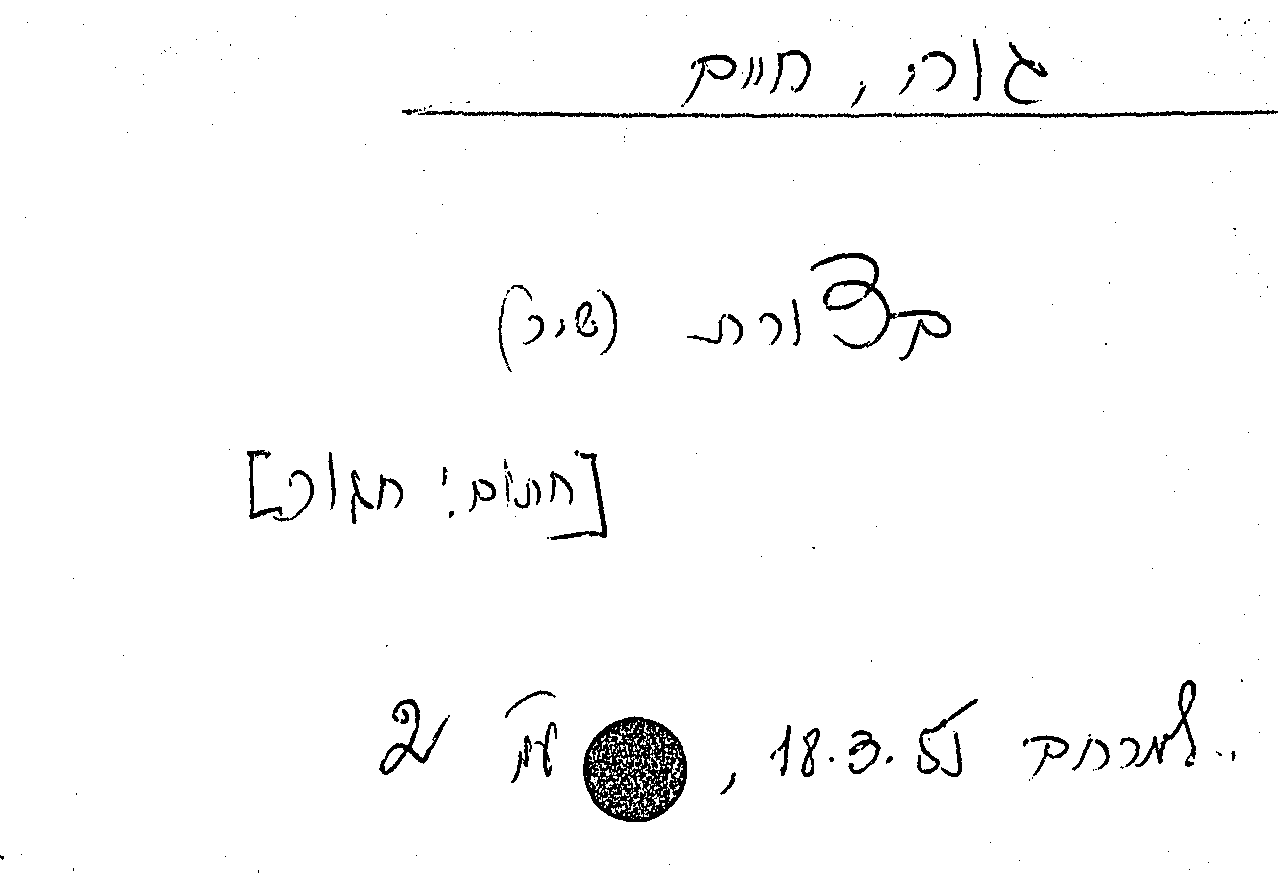 גורי, חיים
בצורת (שיר)
[חתום: חגור]
למרחב 18.3.55, עמ 2